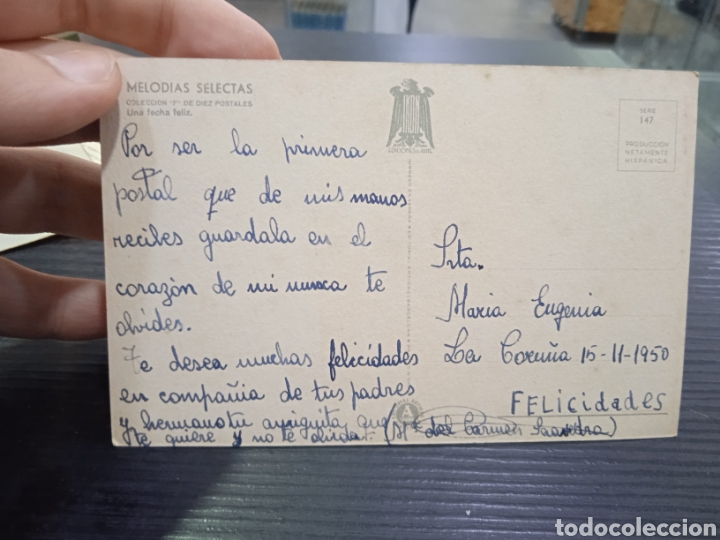 MELODIAS SELECTAS
COLECCION "F" DE DIEZ POSTALES
Una fecha feliz.
Por ser la primera
postal que de mis manos
recibes guardala en el
corazón de mi nunca te
olvides.
Te desea muchas felicidades
en compañia de tus padres
y hermano tu amiguita que
te quiere y no te olvida.
(Mª del Carmen Saavedra)
SERIE
147
PRODUCCIÓN
NETAMENTE
HISPÁNICA
Srta.
Maria Eugenia
La Coruña 15-11-1950
FELICIdAdES
todocoleccion